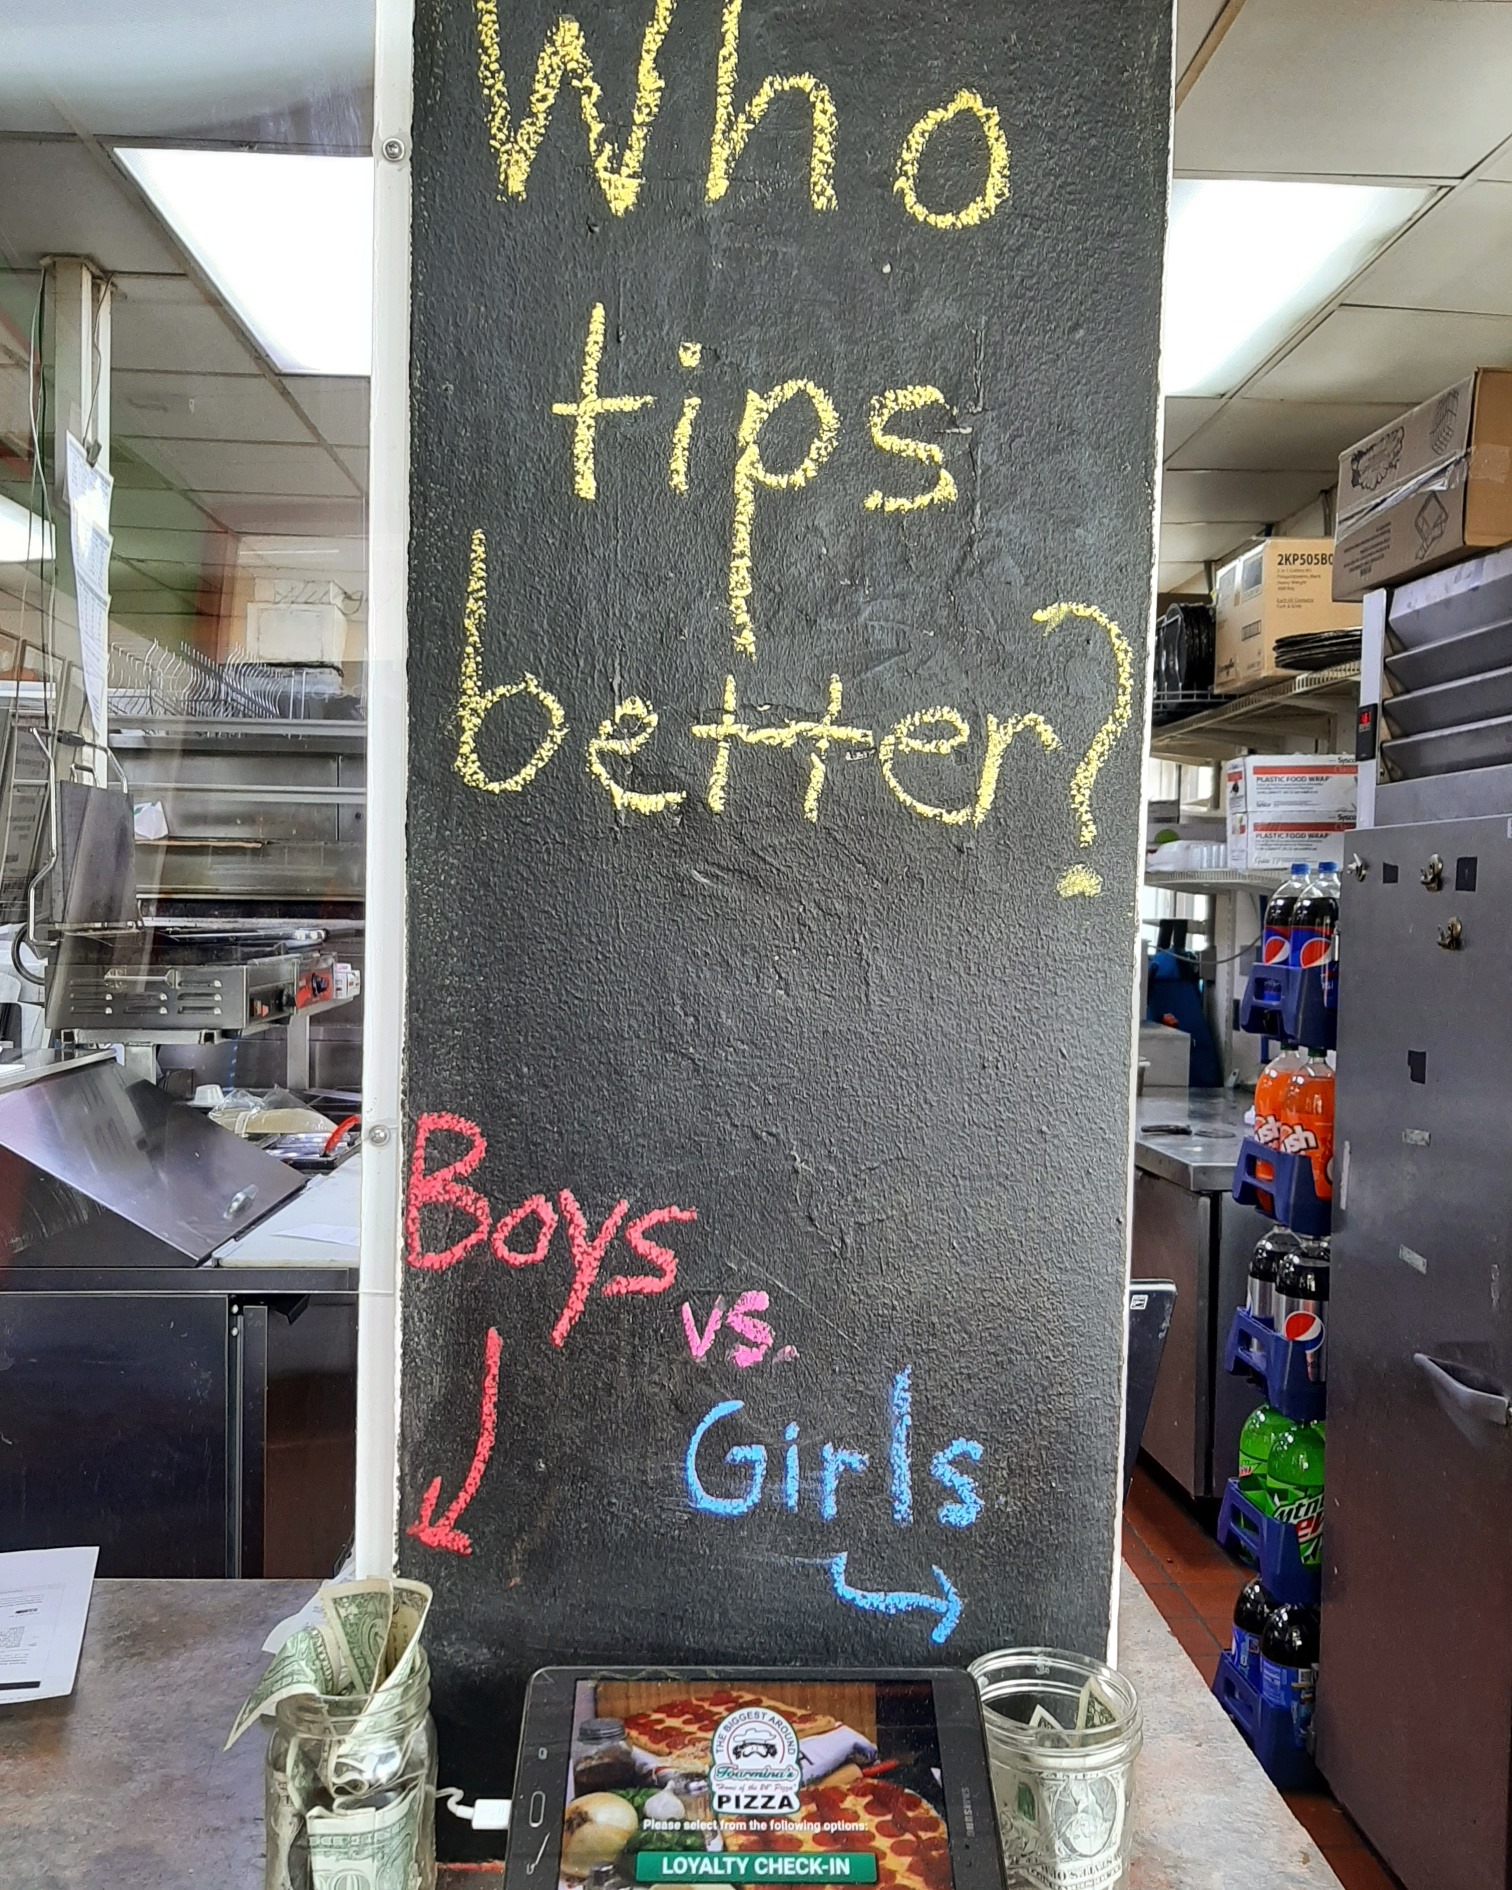 Who
tips
better?
Boys
vs.
Girls
2KP505B0
Sysco
PLASTIC FOOD WRAP
Sysco
PLASTIC FOOD WRAP
THE BIGGEST AROUND
Toarmina's
"Home of the 28" Pizza"
PIZZA
Please select from the following options:
LOYALTY CHECK-IN
SAMSUNG